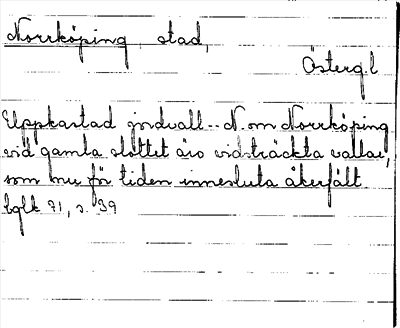 Norrköping, stad,
Österg.l
Uppkastad jordvall. - N. om Norrköping
vid gamla slottet äro vidsträckta vallar,
som nu för tiden innesluta åkerfält
bglk 71, s. 39